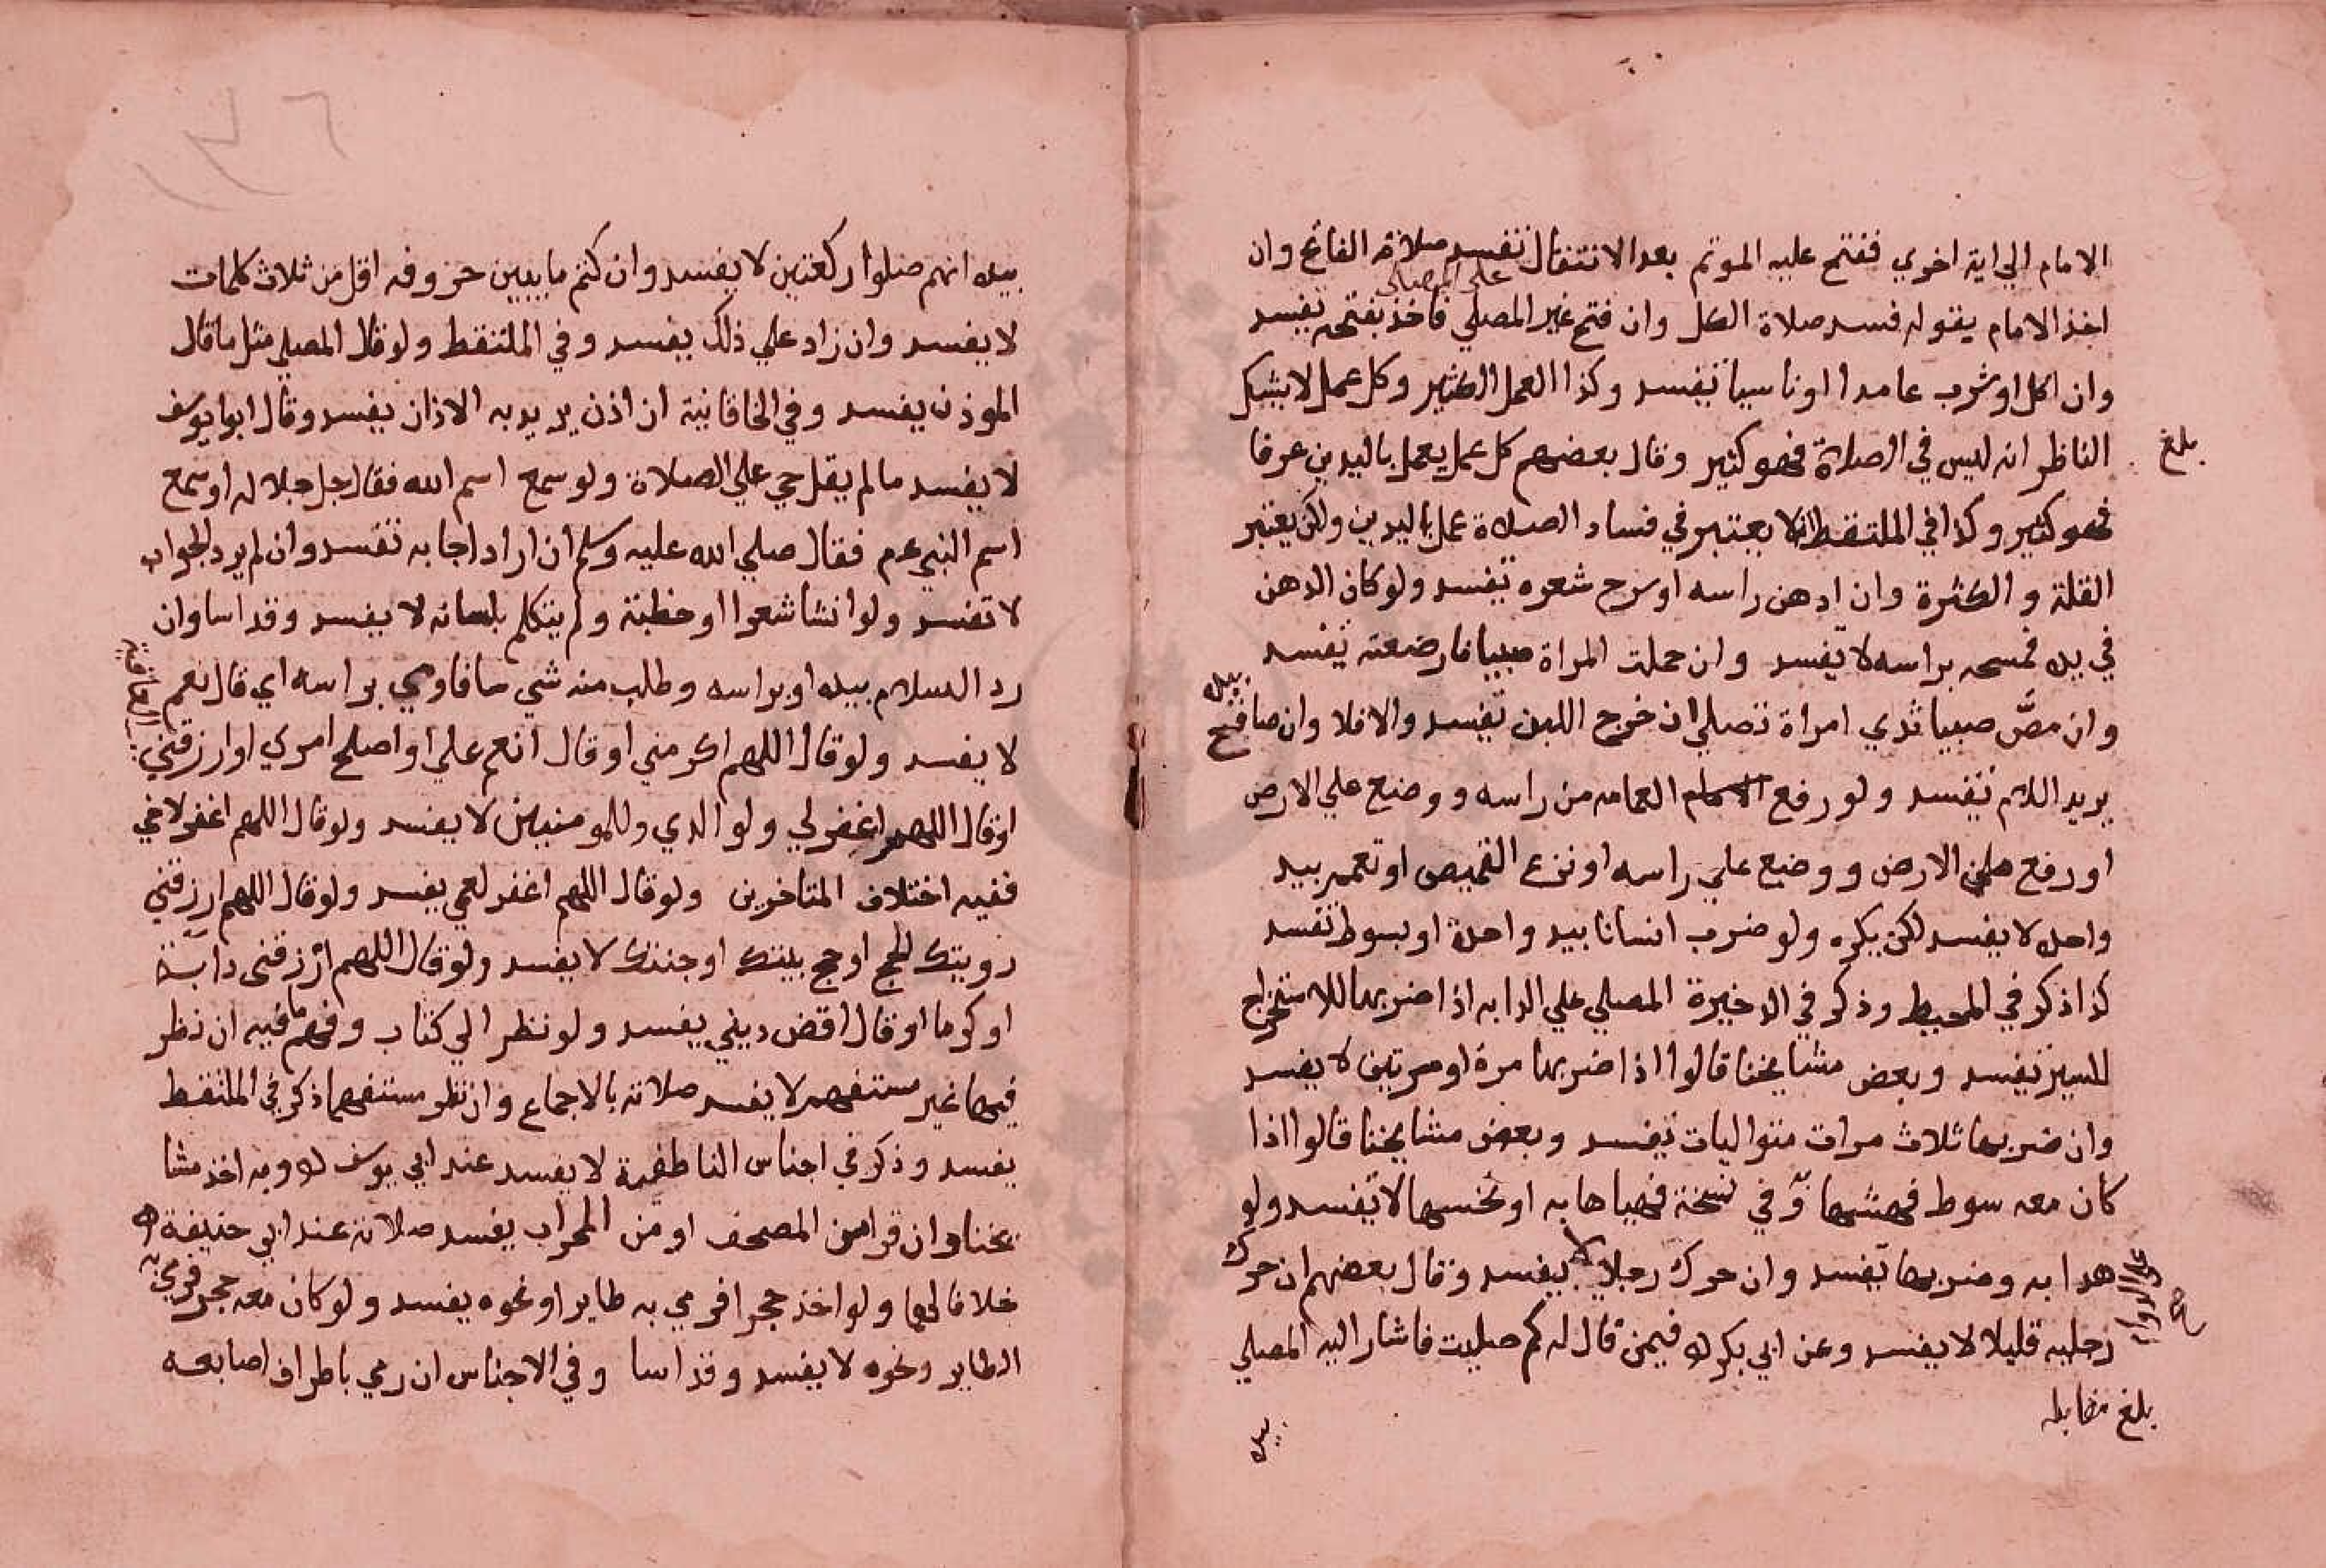 الامام الي اية اخري ففتح عليه الموتم بعد الانتقال تفسد صلاة الفاتح وان
اخذ الامام بقوله فسد صلاة الكل وان فتح غير المصلي على المصلى فاخذ بفتحه تفسد
وان اكل او شرب عامدا او ناسيا تفسد وكذا العمل الكثير وكل عمل لا يشكل
بلغ
الناظر انه ليس في الصلاة فهو كثير وقال بعضهم كل عمل يعمل باليدين عرفا
فهو كثير وكذا في الملتقط لا يعتبر في فساد الصلاة عمل باليدين ولكن يعتبر
القلة والكثرة وان ادهن راسه او سرح شعره تفسد ولو كان الدهن
في يده فمسحه براسه لا يفسد وان حملت المراة صبيا فارضعته تفسد
وان مصّ صبيا ثدي امراة تصلي ان خرج اللبن تفسد والا فلا وان صافح بيده
يريد السلام تفسد ولو رفع العمامه من راسه ووضع علي الارض
او رفع من الارض ووضع علي راسه او نزع القميص او تعمم بيد
واحده لا يفسد لكن يكره ولو ضرب انسانا بيد واحدة او بسوط تفسد
كذا ذكر في المحيط وذكر في الذخيرة المصلي علي الدابه اذا ضربها للاستخراج
للسير تفسد وبعض مشايخنا قالوا اذا ضربها مرة او مرتين لا يفسد
وان ضربها ثلاث مرات متواليات تفسد وبعض مشايخنا قالوا اذا
كان معه سوط فهشها وفي نسخة فهياها به او نخسها لا تفسد ولو
هدا به وضربها تفسد وان حرك رجلا لا يفسد وقال بعضهم ان حرك
رجليه قليلا لا يفسد وعن ابي بكر فيمن قال له كم صليت فاشار اليه المصلي
بلغ مقابله
بيده
بيده انهم صلوا ركعتين لا يفسد وان كتم ما يبين حروفه اقل من ثلاث كلمات
لا يفسد وان زاد علي ذلك يفسد وفي الملتقط ولو قال المصلي مثل ما قال
الموذن يفسد وفي الخاقانية ان اذن يريد به الاذان يفسد وقال ابو يوسف
لا يفسد ما لم يقل حي علي الصلاة ولو سمع اسم الله فقال جل جلاله او سمع
اسم النبي عم فقال صلي الله عليه وسلم ان اراد اجابه تفسد وان لم يرد الجواب
لا تفسد ولو انشا شعرا او خطبة ولم يتكلم بلسانه لا يفسد وقد اسا وان
رد السلام بيده او براسه وطلب منه شي فاومي براسه اي قال نعم
لا يفسد ولو قال اللهم اكرمني او قال انعم علي او اصلح امري او ارزقني
او قال اللهم اغفر لي ولوالدي وللمومنين لا يفسد ولو قال اللهم اغفر لاخي
ففيه اختلاف المتاخرين ولو قال اللهم اغفر لعمي يفسد ولو قال اللهم ارزقني
رويتك للحج او حج بيتك او جنتك لا يفسد ولو قال اللهم ارزقنى دابة
او كرما او قال اقض ديني يفسد ولو نظر الي كتاب وفهم ما فيه ان نظر
فيها غير مستفهم لا يفسد صلاته بالاجماع وان نظر مستفهما ذكر في الملتقط
يفسد وذكر في اجناس الناطفية لا يفسد عند ابي يوسف وبه اخذ مشا
يخنا وان قرا من المصحف او من المحراب يفسد صلاته عند ابي حنيفة
خلافا لهما ولو اخذ حجرا فرمي به طايرا ونحوه يفسد ولو كان معه حجر فرمي به
الطاير ونحوه لا يفسد وقد اسا وفي الاجناس ان رمي باطراف اصابعه